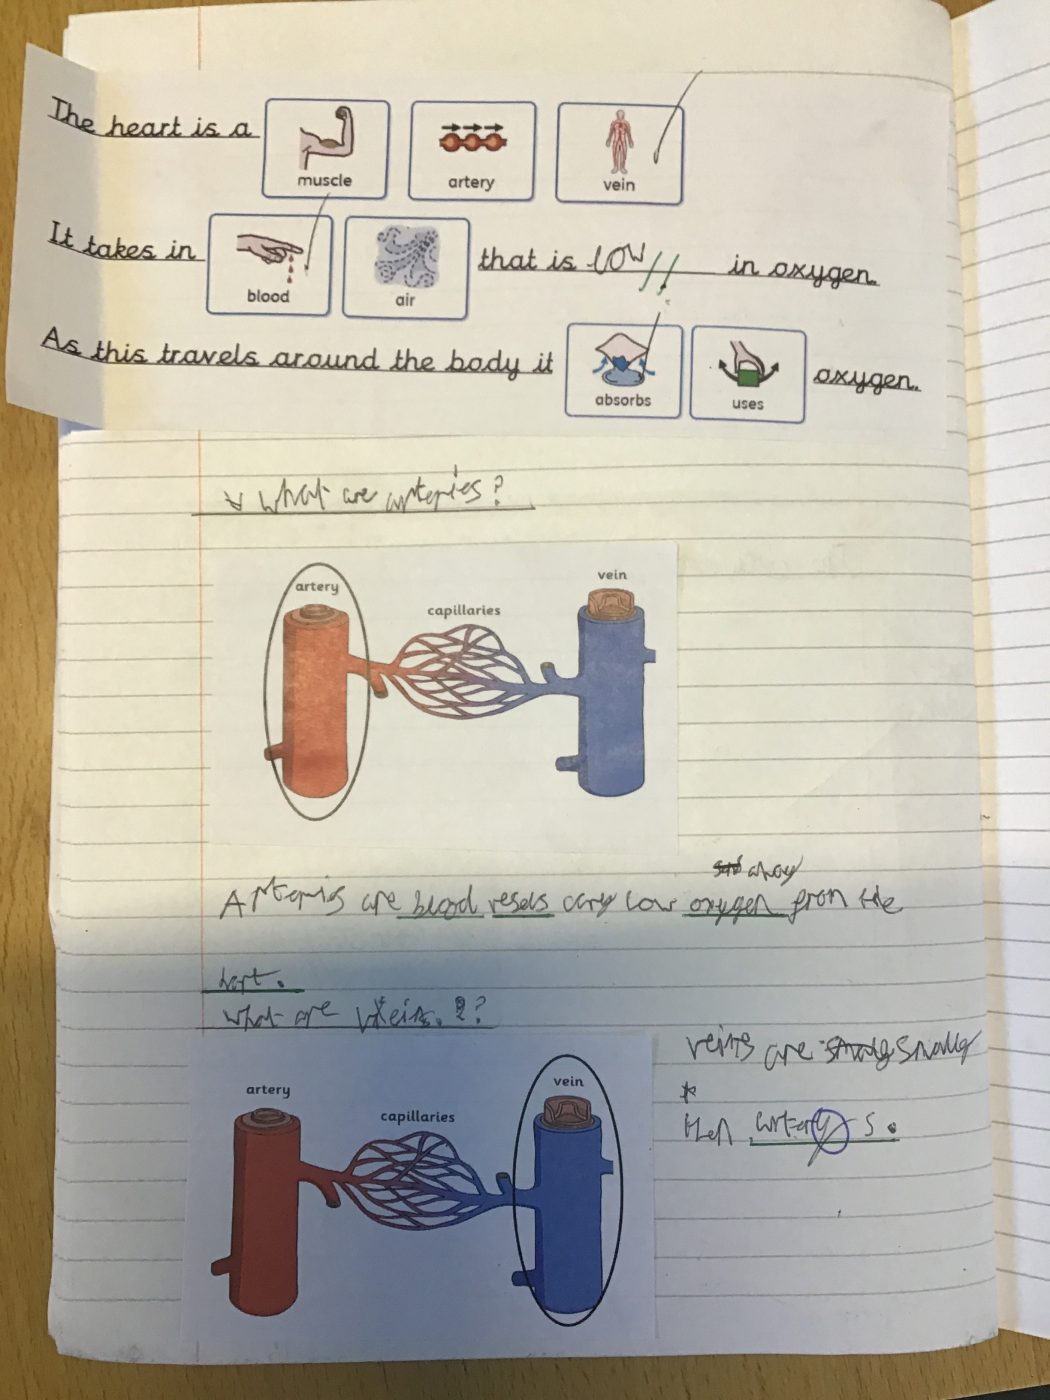 The heart is a muscle artery vein
It takes in blood air that is low in oxygen.
As this travels around the body it absorbs uses oxygen.
What are arteries?
artery capillaries vein
away
Arteris are blood vesels cary low oxygen from the
hart.
What are veins. ?
artery capillaries vein
veins are smally
then artery s.